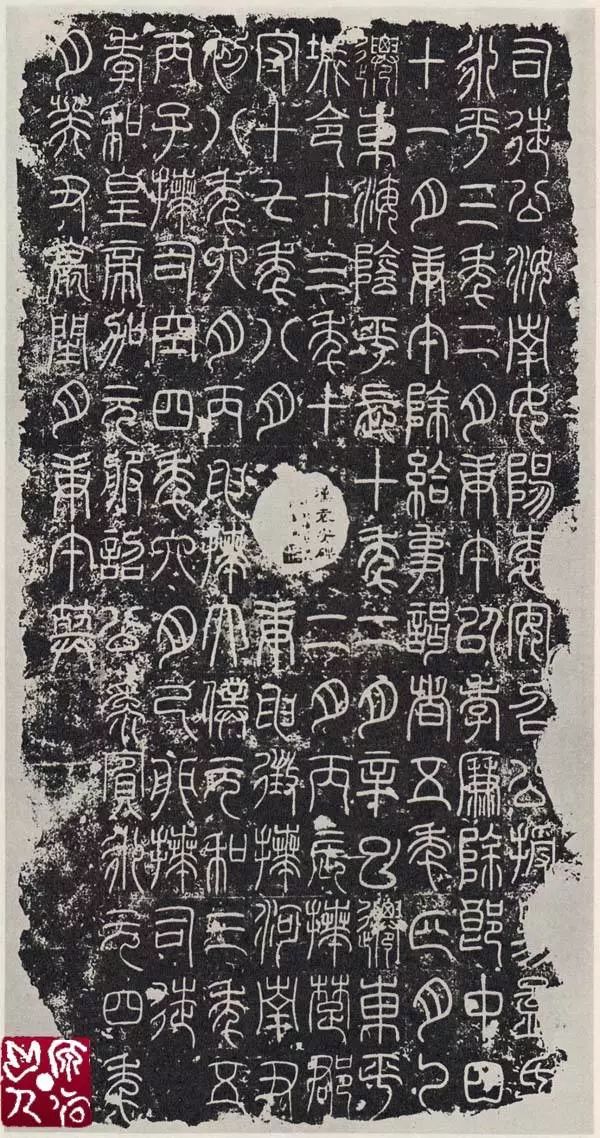 司徒公汝南女陽袁安召公授易孟氏
永平三年二月庚午以孝廉除郎中四
十一月庚午除給事謁者五年正月乙
遷東海陰平長十年二月辛巳遷東平
城令十三年十二月丙辰拜楚郡
守十七年八月庚申徵拜河南尹
初八年六月丙申拜太僕元和三年五
丙子拜司空四年六月己卯拜司徒
孝和皇帝加元服詔公為賓永元四年
月癸丑薨閏月庚午葬
漢袁安碑